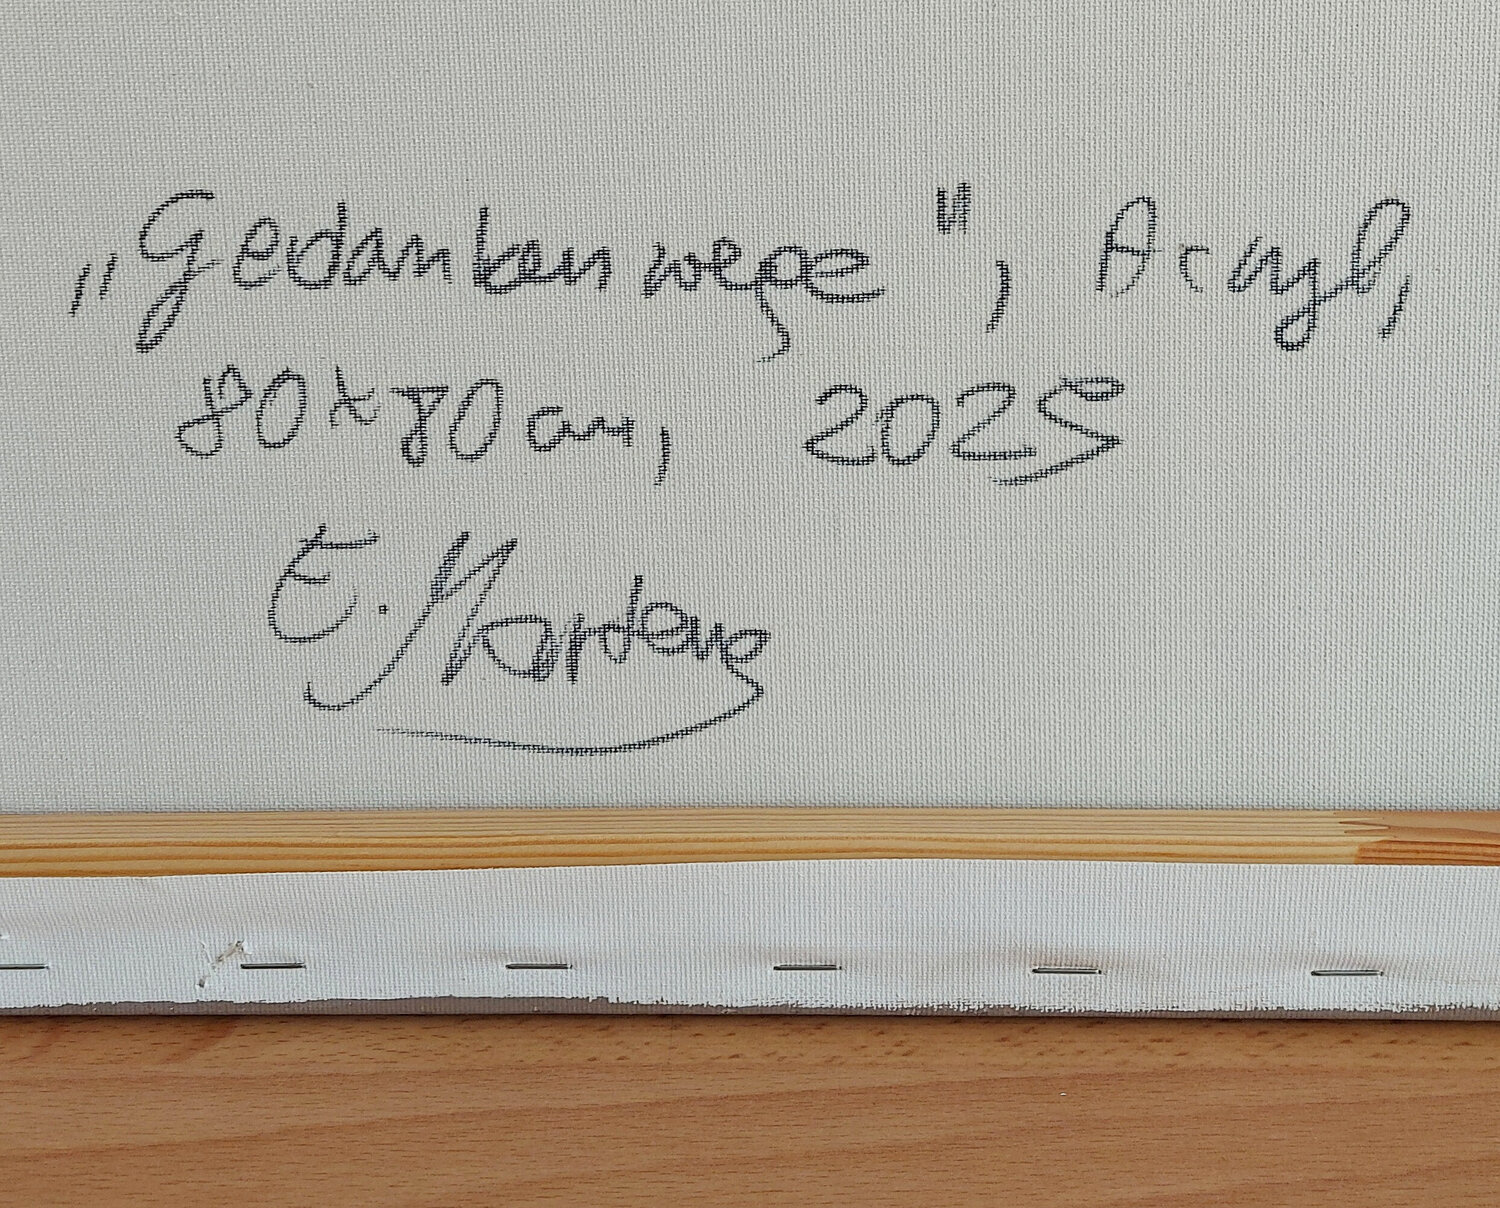 „Gedankenwege", Acryl,
80x80cm, 2025
E. Mardeve